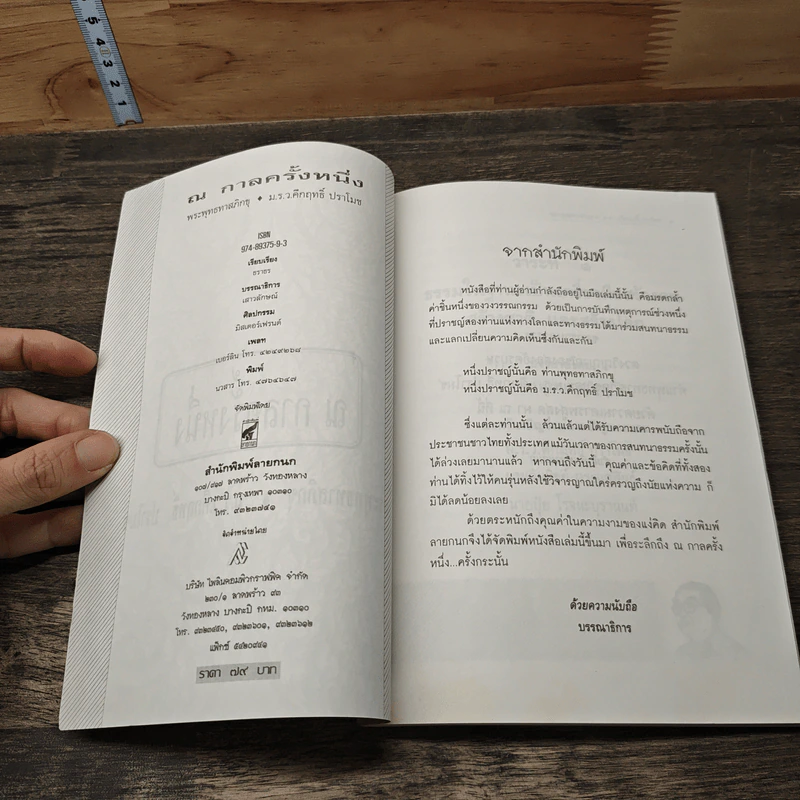 5
4
3
2
1
ณ กาลครั้งหนึ่ง
พระพุทธทาสภิกขุ ♦ ม.ร.ว.คึกฤทธิ์ ปราโมช
ISBN
974-89375-9-3
เรียบเรียง
ธราธร
บรรณาธิการ
เสาวลักษณ์
ศิลปกรรม
มิสเตอร์เฟรนด์
เพลท
เบอร์ลิน โทร. ๔๒๔๙๒๖๘
พิมพ์
นวสาร โทร. ๔๗๖๔๖๔๗
จัดพิมพ์โดย
สำนักพิมพ์ลายกนก
๑๐๘/๔๗๘ ลาดพร้าว วังทองหลาง
บางกะปิ กรุงเทพฯ ๑๐๓๑๐
โทร. ๙๓๒๓๗๔๑
จัดจำหน่ายโดย
บริษัท ไพลินคอมพิวกราฟฟิค จำกัด
๒๓๐/๑ ลาดพร้าว ๙๓
วังทองหลาง บางกะปิ กทม. ๑๐๓๑๐
โทร. ๙๓๒๓๔๕๐, ๙๓๒๓๖๐๑, ๙๓๒๓๖๑๒
แฟ็กซ์ ๕๔๒๐๙๔๑
ราคา ๗๙ บาท
จากสำนักพิมพ์
หนังสือที่ท่านผู้อ่านกำลังถืออยู่ในมือเล่มนี้นั้น คือมรดกล้ำ
ค่าชิ้นหนึ่งของวงวรรณกรรม ด้วยเป็นการบันทึกเหตุการณ์ช่วงหนึ่ง
ที่ปราชญ์สองท่านแห่งทางโลกและทางธรรมได้มาร่วมสนทนาธรรม
และแลกเปลี่ยนความคิดเห็นซึ่งกันและกัน
หนึ่งปราชญ์นั้นคือ ท่านพุทธทาสภิกขุ
หนึ่งปราชญ์นั้นคือ ม.ร.ว.คึกฤทธิ์ ปราโมช
ซึ่งแต่ละท่านนั้น ล้วนแล้วแต่ได้รับความเคารพนับถือจาก
ประชาชนชาวไทยทั้งประเทศ แม้วันเวลาของการสนทนาธรรมครั้งนั้น
ได้ล่วงเลยมานานแล้ว หากจนถึงวันนี้ คุณค่าและข้อคิดที่ทั้งสอง
ท่านได้ทิ้งไว้ให้คนรุ่นหลังใช้วิจารญาณใคร่ครวญถึงนัยแห่งความ ก็
มิได้ลดน้อยลงเลย
ด้วยตระหนักถึงคุณค่าในความงามของแง่คิด สำนักพิมพ์
ลายกนกจึงได้จัดพิมพ์หนังสือเล่มนี้ขึ้นมา เพื่อระลึกถึง ณ กาลครั้ง
หนึ่ง...ครั้งกระนั้น
ด้วยความนับถือ
บรรณาธิการ